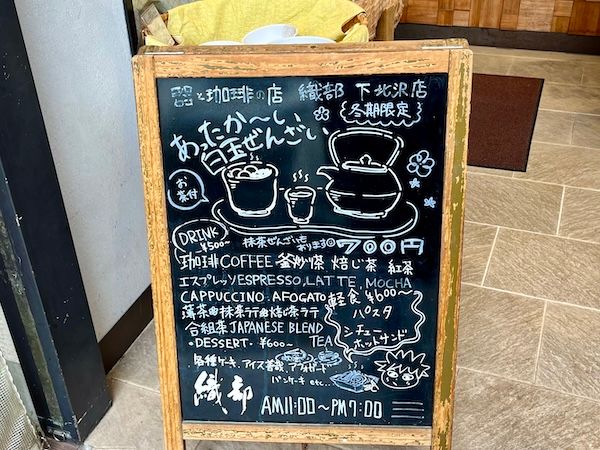 器と珈琲の店 織部 下北沢店
冬期限定
あったか〜い
白玉ぜんざい
お茶付
抹茶ぜんざいも
あります
700円
DRINK
¥500〜
珈琲COFFEE 釜炒茶 焙じ茶 紅茶
エスプレッソESPRESSO,LATTE,MOCHA
CAPPUCCINO.AFOGATO
薄茶 抹茶ラテ 焙じ茶ラテ
合組茶JAPANESE BLEND
TEA
軽食 ¥600〜
パスタ
シチュー
ホットサンド
・DESSERT・¥600〜
各種ケーキ.アイス善哉 アフォガード
パンケーキ etc...
織部
AM11:00〜PM7:00